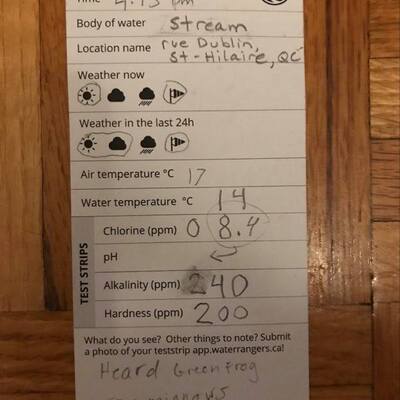 Time 4:15 pm
Body of water stream
Location name rue Dublin,
St-Hilaire, QC
Weather now
Weather in the last 24h
Air temperature °C 17
Water temperature °C 14
TEST STRIPS
Chlorine (ppm) 0 8.4
pH
Alkalinity (ppm) 240
Hardness (ppm) 200
What do you see? Other things to note? Submit
a photo of your teststrip app.waterrangers.ca!
Heard Green frog
minnows